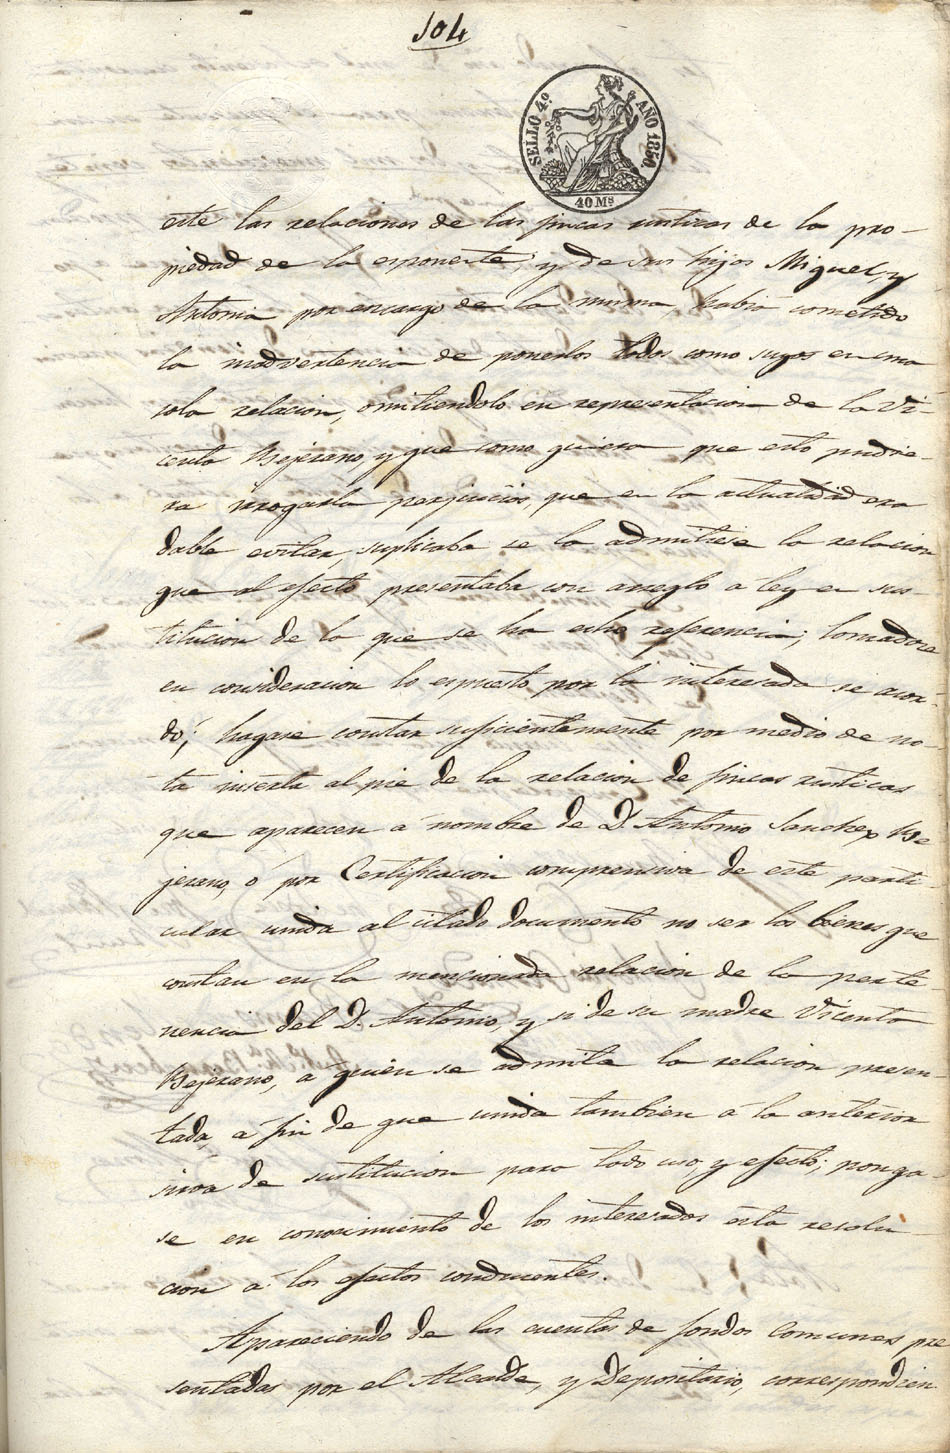 104
SELLO 4.º AÑO 1850
40 Ms
este las relaciones de las fincas rusticas de la pro-
piedad de la esponente, y de sus hijos Miguel, y
Antonia por encargo de la misma, habia cometido
la inadvertencia de ponerlos todos como suyos en una
sola relacion, omitiendolo en representacion de la Vi-
centa Bejerano, y que como quiera que esto pudie-
ra irrogarla perjuicios, que en la actualidad era
dable evitar, suplicaba se la admitiese la relacion
que al efecto presentaba con arreglo a ley en sus-
titucion de la que se ha echo referencia; tomadose
en consideracion lo espuesto por la interesada se acor-
dó; hagase constar suficientemente por medio de no-
ta inserta al pie de la relacion de fincas rusticas
que aparecen á nombre de D. Antonio Sanchez Be
jerano, ó por Certificacion comprensiva de este parti-
cular unida al citado documento no ser los bienes que
constan en la mencionada relacion de la perte-
nencia del D. Antonio, y si de su madre Vicenta
Bejerano, a quien se admite la relacion presen-
tada, a fin de que unida tambien á la anterior
sirva de sustitucion para todo uso, y efecto; ponga-
se en conocimiento de los interesados esta resolu-
cion á los efectos conducentes.
Apareciendo de las cuentas de fondos Comunes pre
sentadas por el Alcalde, y Depositario, correspondien